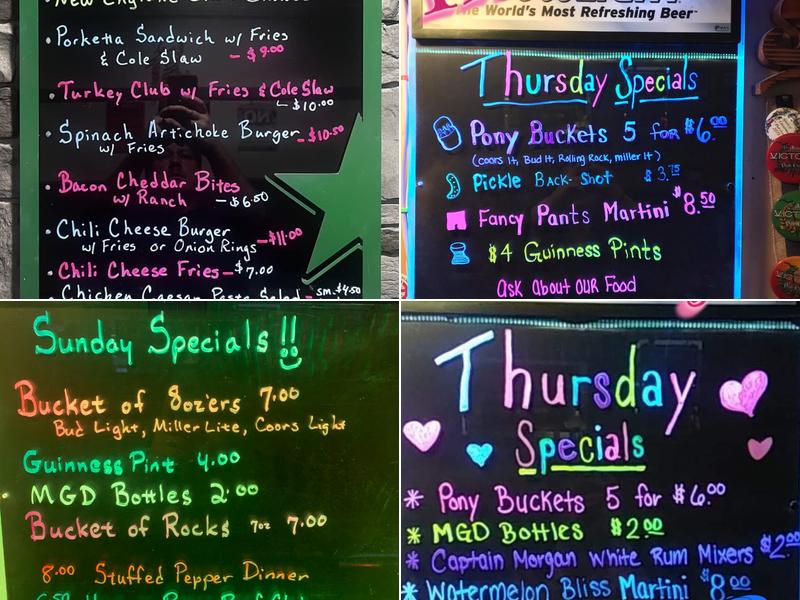 New England Clam
• Porketta Sandwich w/ Fries
& Cole Slaw - $9.00
• Turkey Club w/ Fries & Cole Slaw
$10.00
• Spinach Artichoke Burger - $10.50
w/ Fries
• Bacon Cheddar Bites
w/ Ranch - $6.50
• Chili Cheese Burger
w/ Fries or Onion Rings - $11.00
• Chili Cheese Fries - $7.00
• Chicken Caesar Pasta Salad - sm. $4.50
The World's Most Refreshing Beer
Thursday Specials
Pony Buckets 5 for $6.00
(Coors lt, Bud lt, Rolling Rock, miller lt)
Pickle Back-Shot $3.75
Fancy Pants Martini $8.50
$4 Guinness Pints
Ask About our Food
VICTO
Sunday Specials!!
Bucket of 8oz'ers 7.00
Bud Light, Miller Lite, Coors Light
Guinness Pint 4.00
• MGD Bottles 2.00
Bucket of Rocks 7oz 7.00
8.00 Stuffed Pepper Dinner
Thursday
Specials
* Pony Buckets 5 for $6.00
* MGD Bottles $2.00
* Captain Morgan White Rum Mixers $2.00
* Watermelon Bliss Martini $8.00